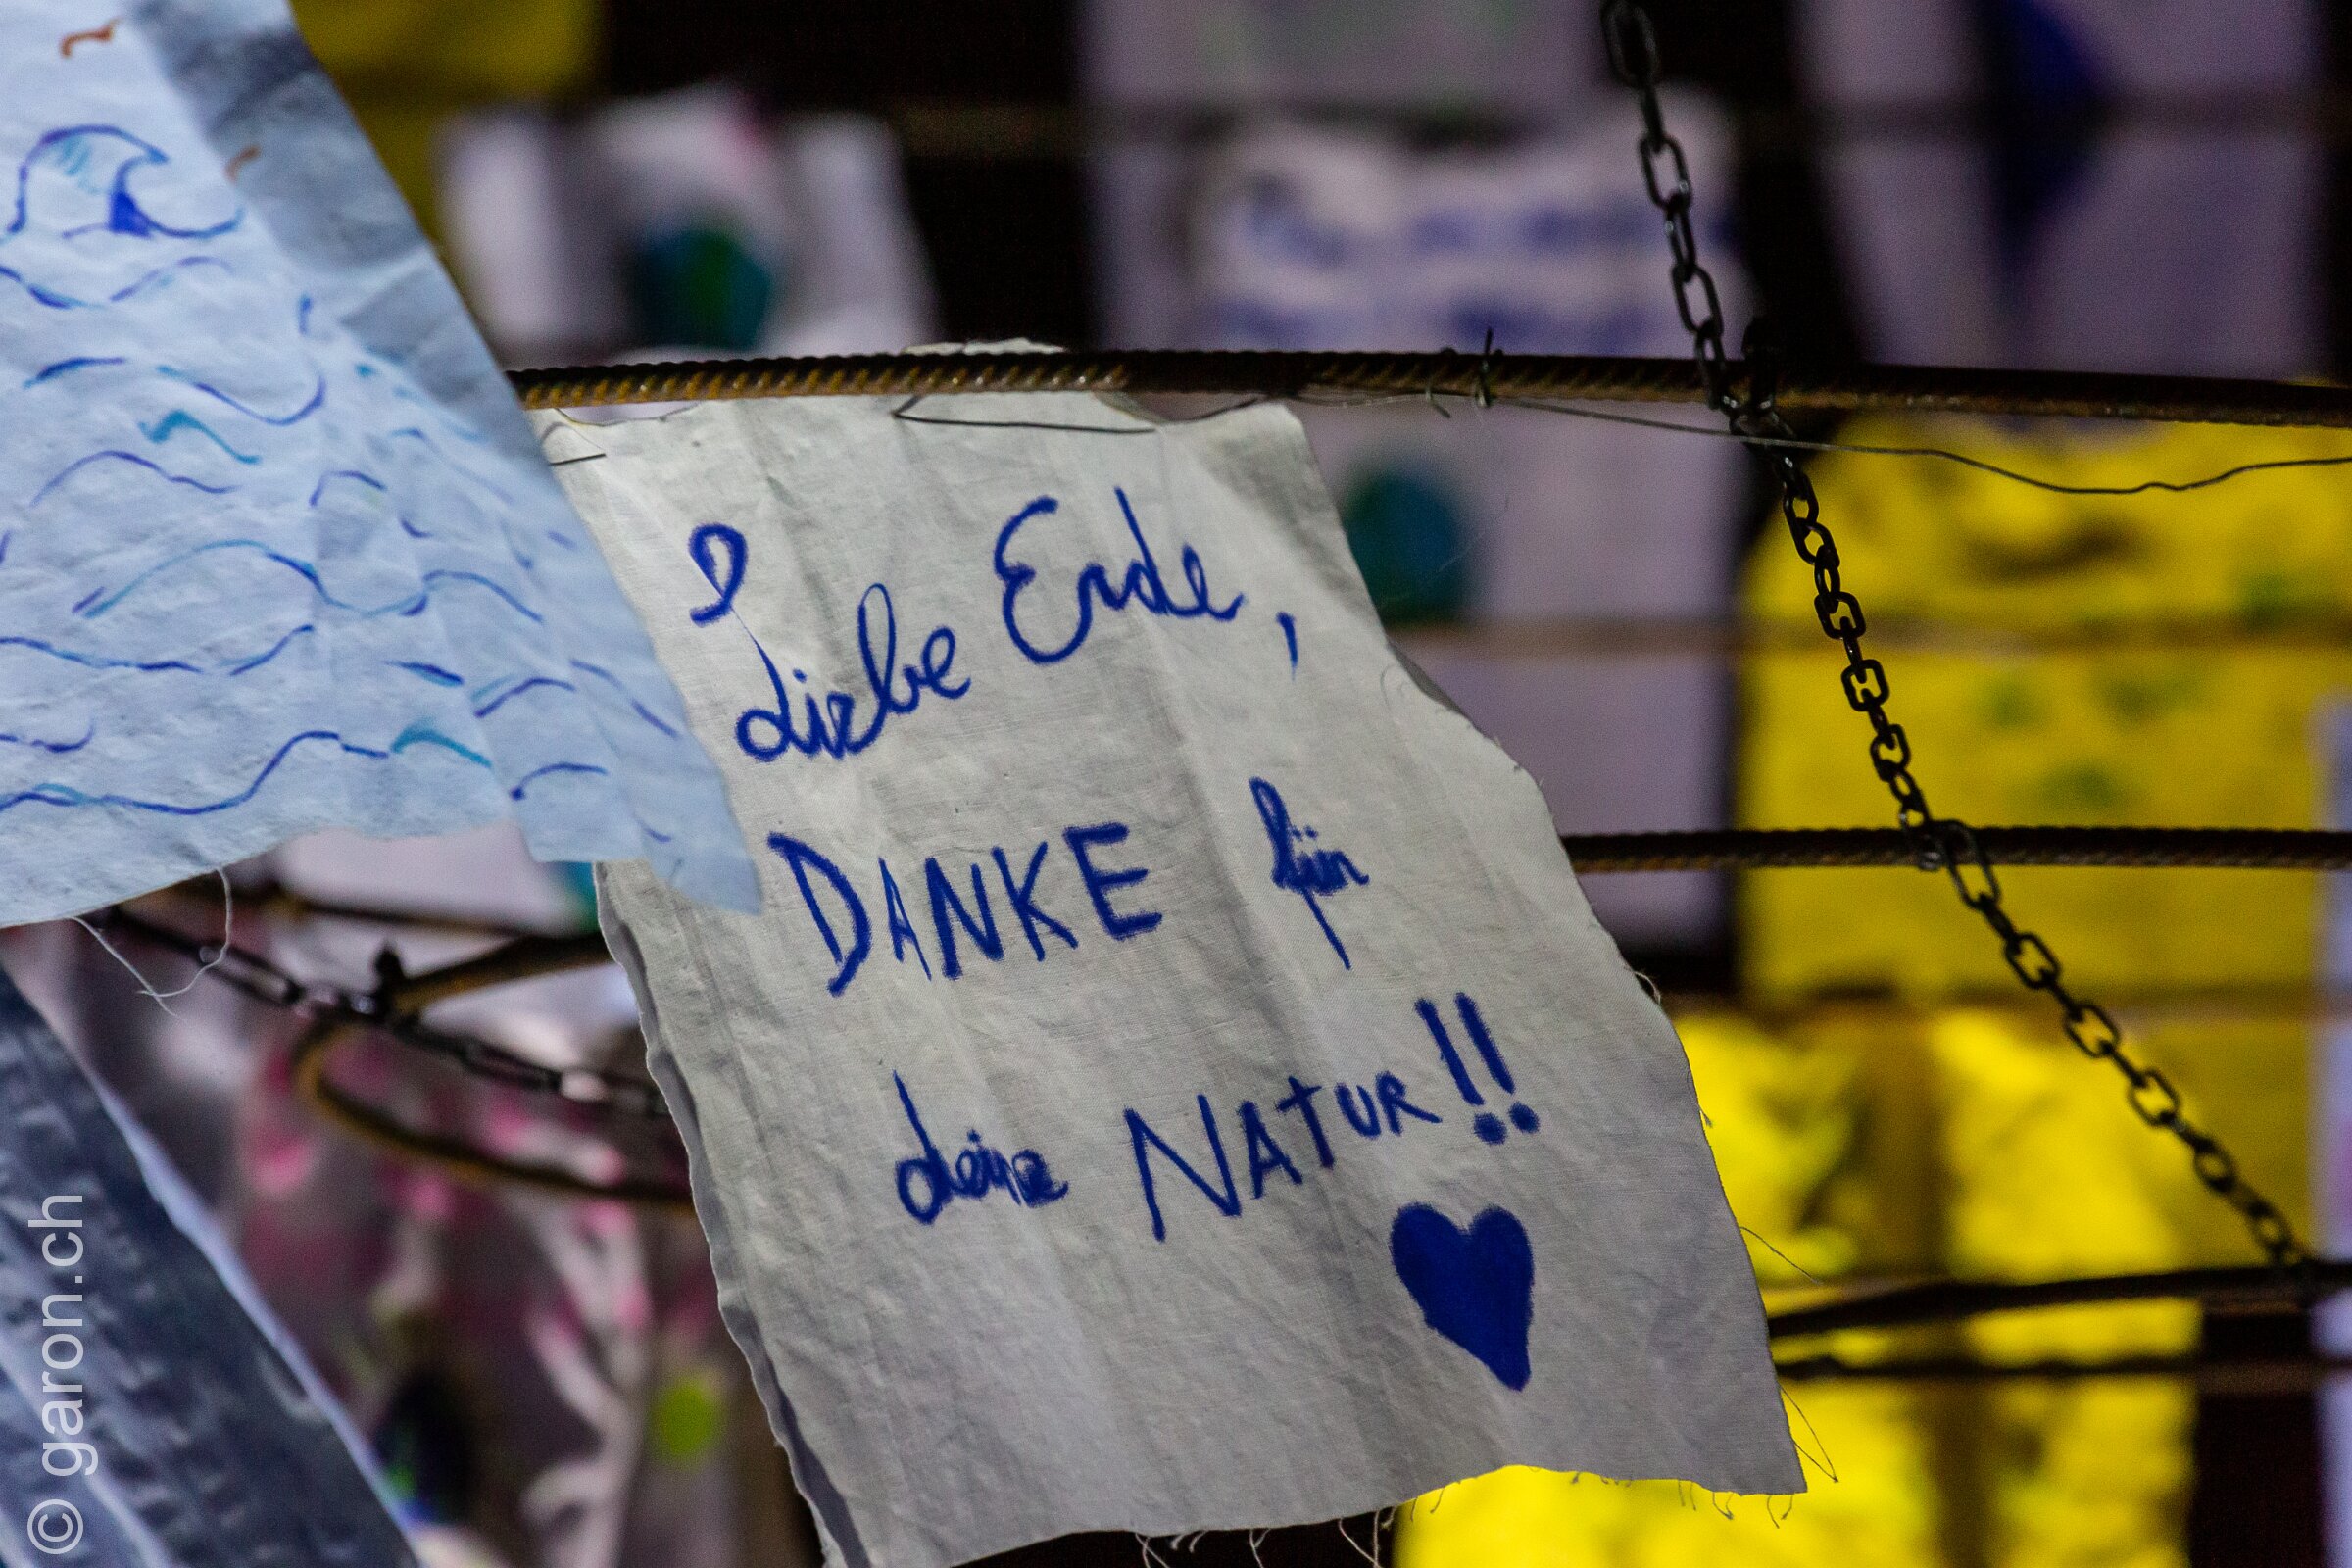 Liebe Erde,
DANKE für
deine NATUR!!
© garon.ch